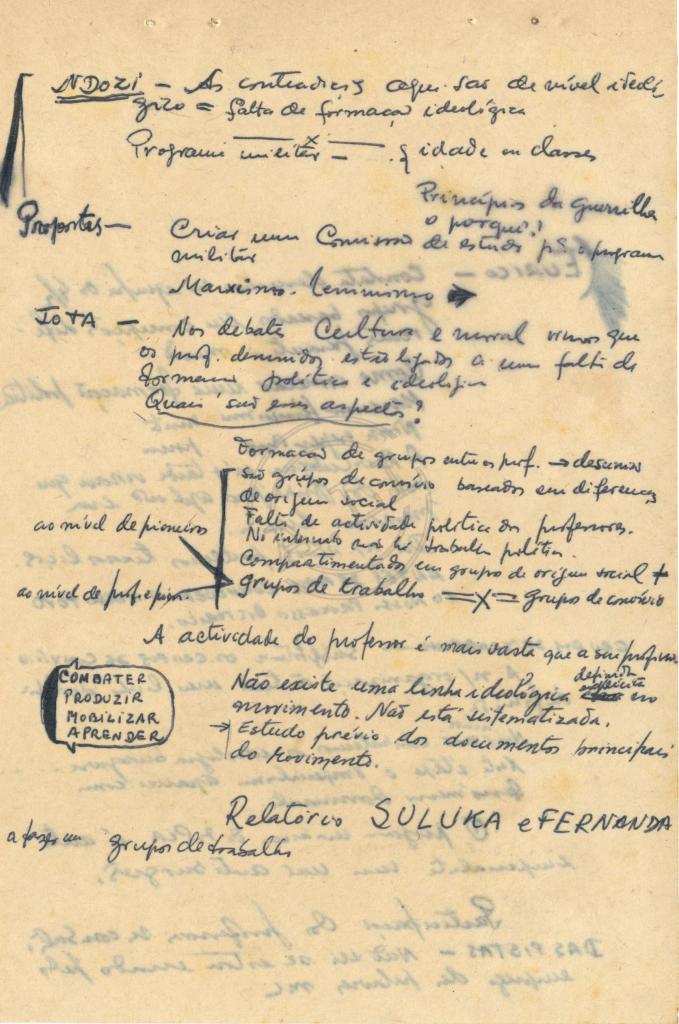 NDOZI — As contradições aqui são de nível ideoló-
gico = falta de formação ideológica
Programa militar — idade ou classes
Princípios da guerrilha
o porquê!
Propostas — Criar uma Comissão de estudo p/ o programa
militar
Marxismo-leninismo →
JOTA — Nos debates Cultura e moral vimos que
os prof. desunidos estão ligados a uma falta de
formação política e ideológica
Quais são esses aspectos?
Formação de grupos entre os prof. → desunião
são grupos de convívio baseados em diferenças
de origem social
Falta de actividade política dos professores.
No internato não há trabalho político.
Compartimentados em grupos de origem social +
grupos de trabalho =x= grupos de convívio
ao nível de pioneiros
ao nível de prof e pion.
A actividade do professor é mais vasta que a sua
COMBATER
PRODUZIR
MOBILIZAR
APRENDER
Não existe uma linha ideológica definida explícita no
movimento. Não está sistematizada.
→ Estudo prévio dos documentos principais
do Movimento.
Relatório SULUKA e FERNANDA
a fazer em grupos de trabalho